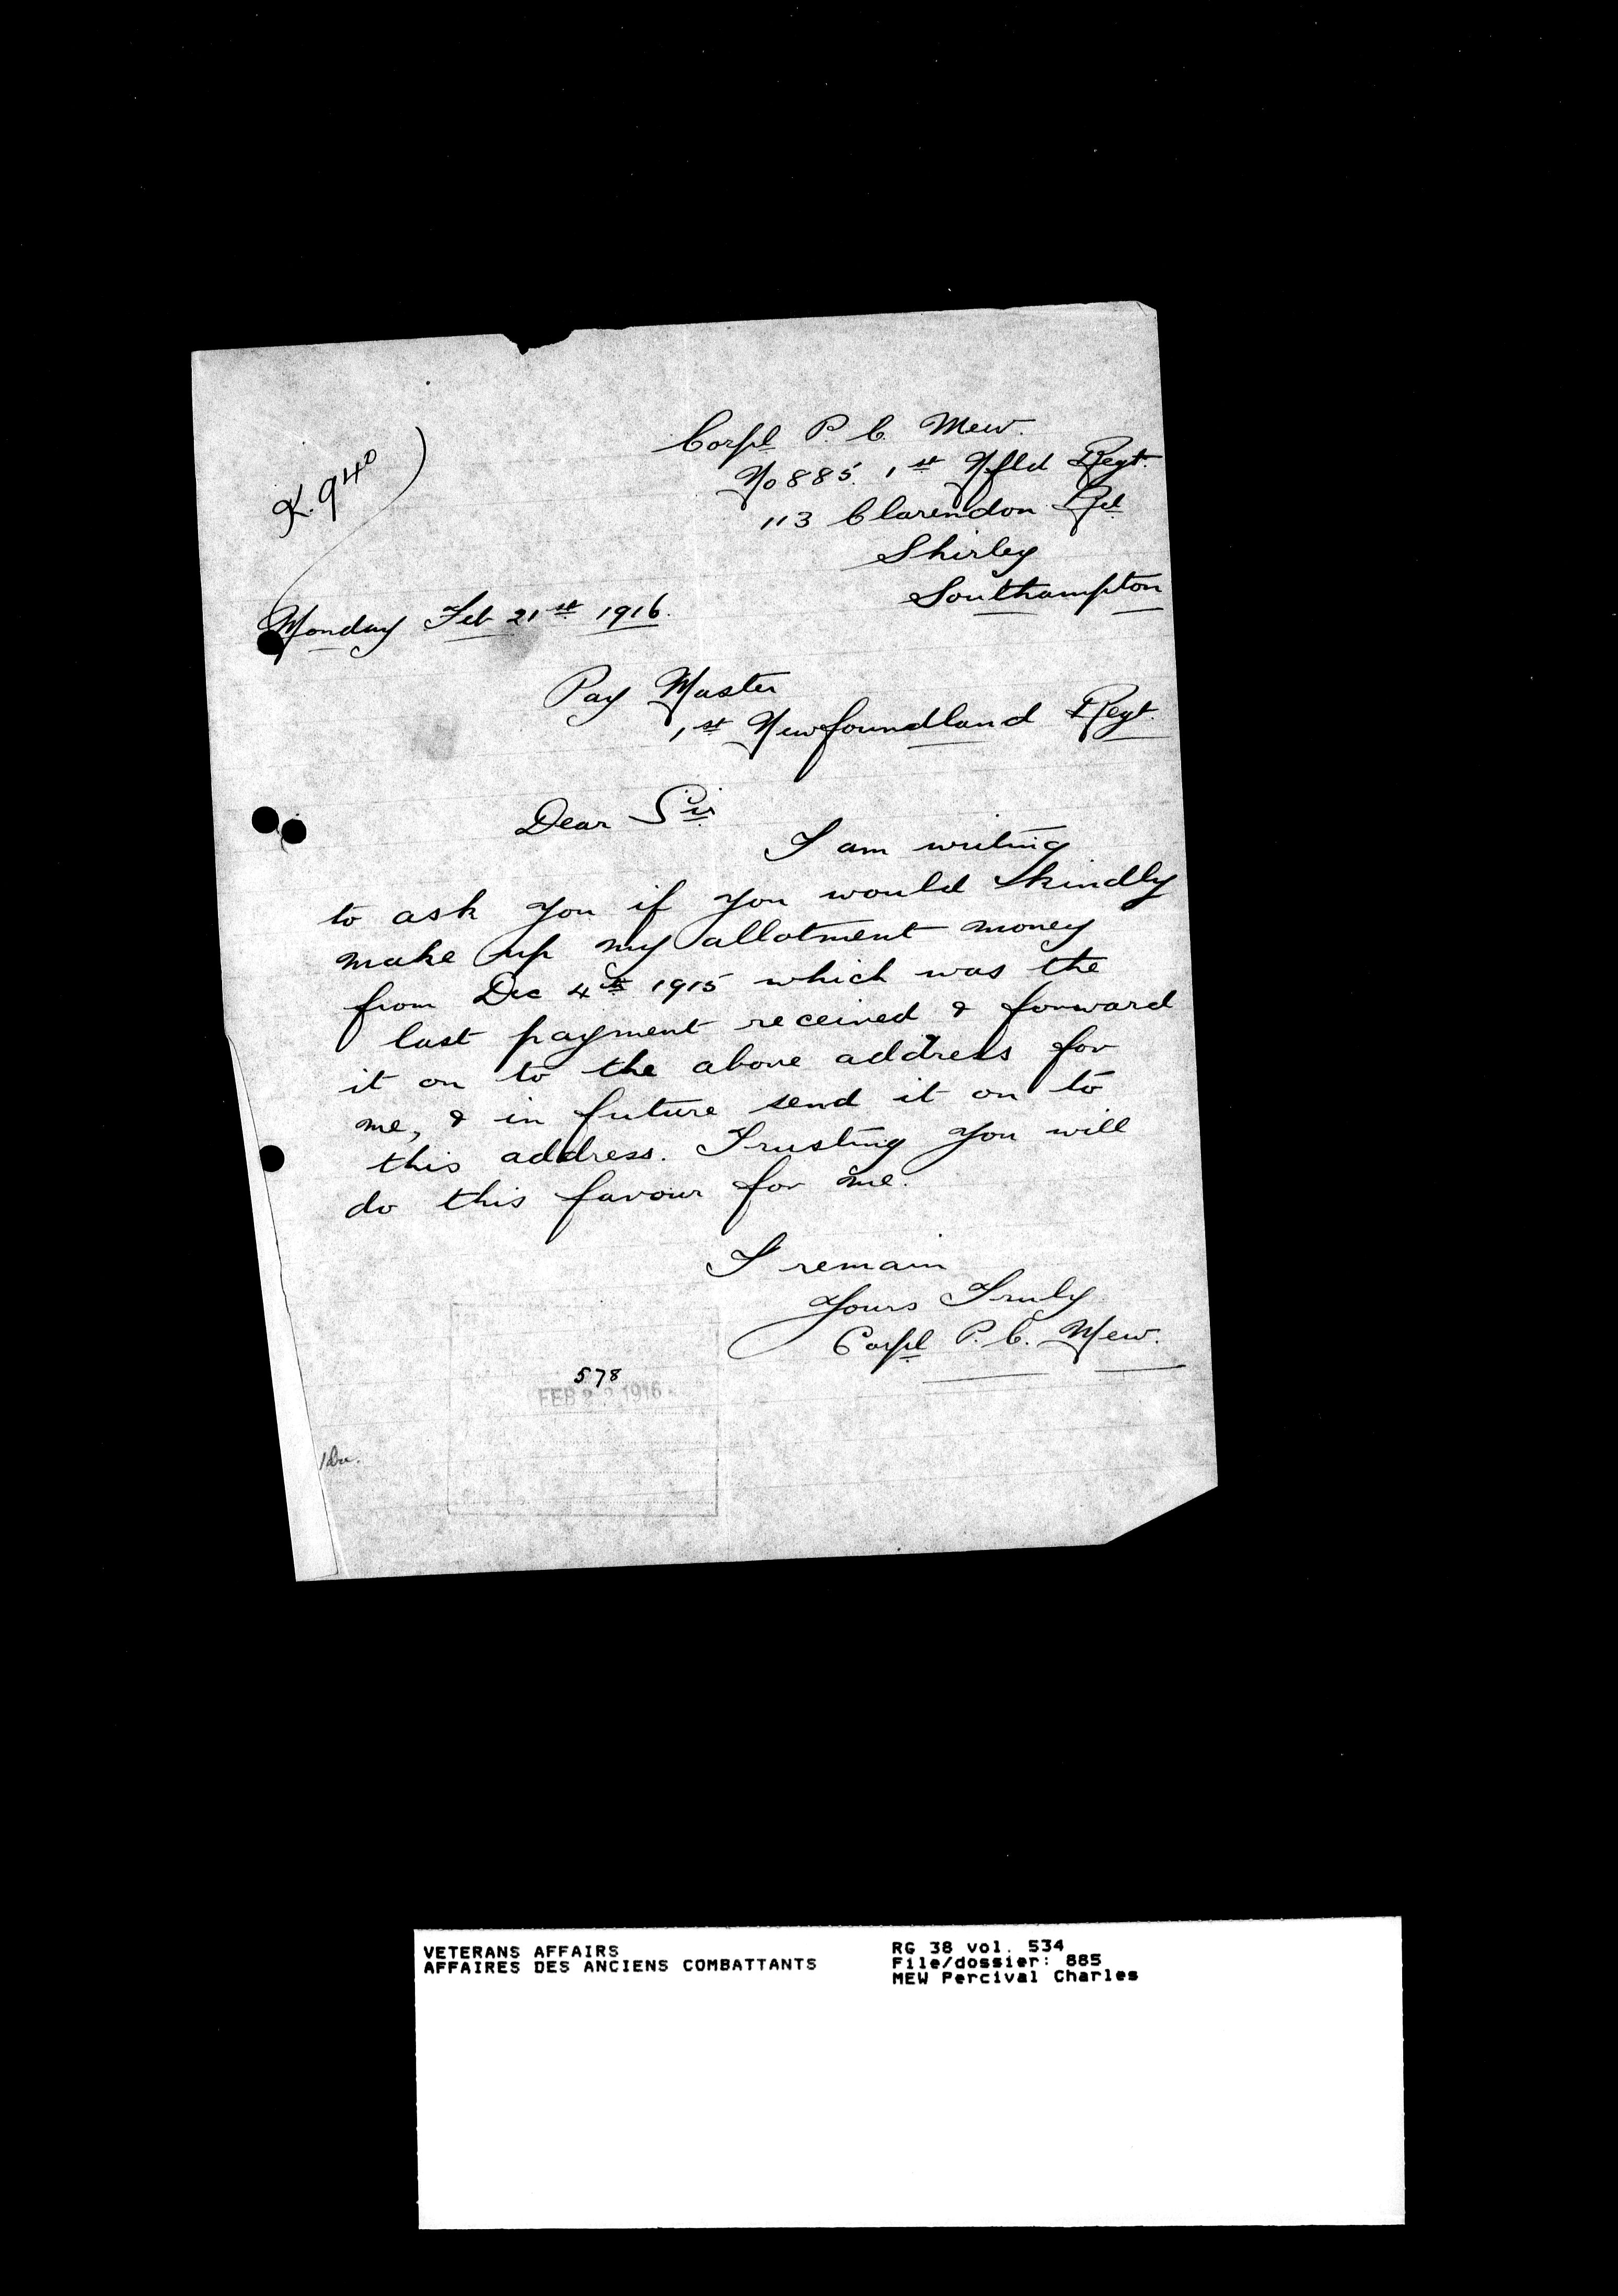 Corpl P. C. Mew.
No 885. 1st Nfld Regt.
113 Clarendon Rd
Shirley
Southampton
K.940
Monday Feb 21st 1916.
Pay Master
1st Newfoundland Regt.
Dear Sir
I am writing
to ask you if you would kindly
make up my allotment money
from Dec 4th 1915 which was the
last payment received & forward
it on to the above address for
me, & in future send it on to
this address. Trusting you will
do this favour for me.
I remain
Yours Truly
Corpl P. C. Mew.
578
FEB 22 1916
VETERANS AFFAIRS
AFFAIRES DES ANCIENS COMBATTANTS
RG 38 vol. 534
File/dossier: 885
MEW Percival Charles